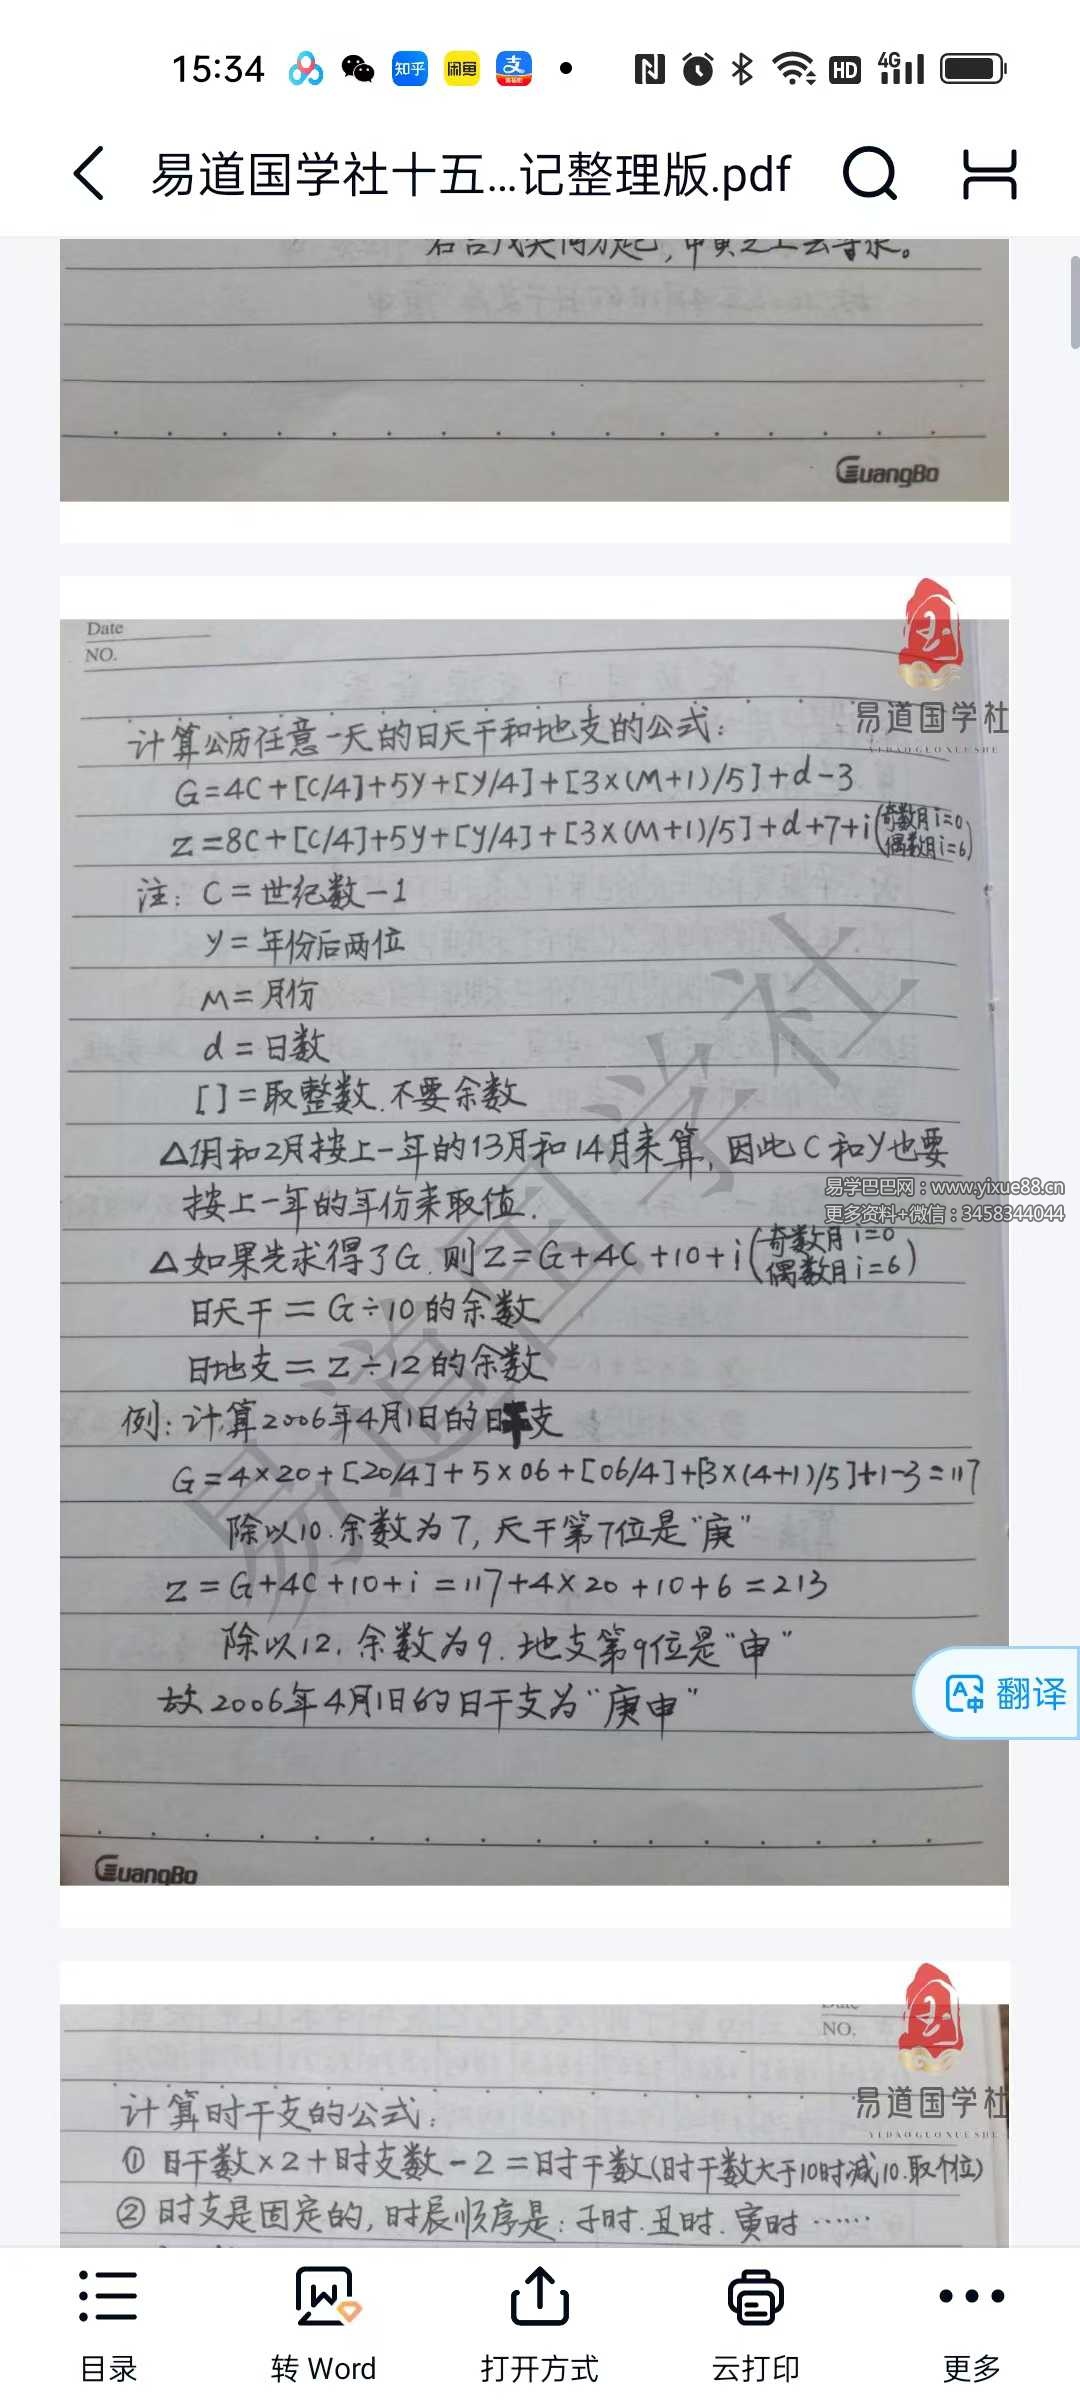 15:34
知乎
闲鱼
支
HD
4G
易道国学社十五...记整理版.pdf
GuangBo
Date
NO.
易道国学社
YIDAOGUOXUESHE
计算公历任意一天的日天干和地支的公式:
G=4C+[C/4]+5y+[y/4]+[3×(M+1)/5]+d-3
Z=8C+[C/4]+5y+[y/4]+[3×(M+1)/5]+d+7+i(奇数月i=0 偶数月i=6)
注: C=世纪数-1
y=年份后两位
M=月份
d=日数
[]=取整数.不要余数
△1月和2月按上一年的13月和14月来算,因此C和y也要
按上一年的年份来取值.
易学巴巴网:www.yixue88.cn
更多资料+微信:3458344044
△如果先求得了G.则Z=G+4C+10+i(奇数月i=0 偶数月i=6)
日天干=G÷10的余数
日地支=Z÷12的余数
例:计算2006年4月1日的日干支
G=4×20+[20/4]+5×06+[06/4]+[3×(4+1)/5]+1-3=117
除以10.余数为7,天干第7位是"庚"
Z=G+4C+10+i=117+4×20+10+6=213
除以12.余数为9.地支第9位是"申"
故2006年4月1日的日干支为"庚申"
易道国学社
翻译
GuangBo
NO.
易道国学社
YIDAOGUOXUESHE
计算时干支的公式:
①日干数×2+时支数-2=时干数(时干数大于10时减10.取个位)
②时支是固定的,时辰顺序是:子时.丑时.寅时……
目录
转 Word
打开方式
云打印
更多